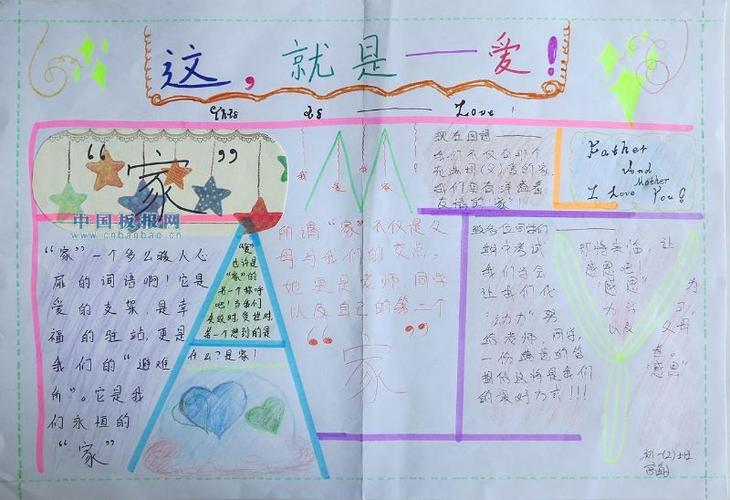 这，就是——爱！
This is —— Love!
“家”
中国板报网
www.cnbanbao.cn
“家”一个多么暖人心
扉的词语啊！它是
爱的支架，是幸
福的驻站，更是
我们的“避难
所”。它是我
们永恒的
“家”
“爱”
也许是
“家”的
另一个称呼
吧！当我们
失败时，受挫时，
第一个想到的是
什么？是家！
我 爱 家
所谓“家”不仅是父
母与我们的交点，
她更是老师，同学
以及自己的第二个
“家”
我们不仅有那个
充满母（父）爱的家，
我们更有洋溢着
友情的“家”！
Father
And
Mother
I Love You!
致各位同学们
期中考试
我们当会
让我们化
“动力”努
给老师，同学，
一份满意的答
最好方式！！！
即将来临，让
感恩吧
感恩”为
力学习，
以及父母
卷。
“感恩”
初一（2）班